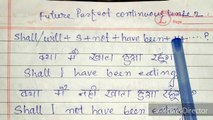 Future Perfect continuous tense
Shall/will + S + not + have been +
क्या मैं खाता हुआ रहूंगा
Shall I have been eating
क्या मैं नहीं खाता हुआ रहूंगा
Shall I not have been